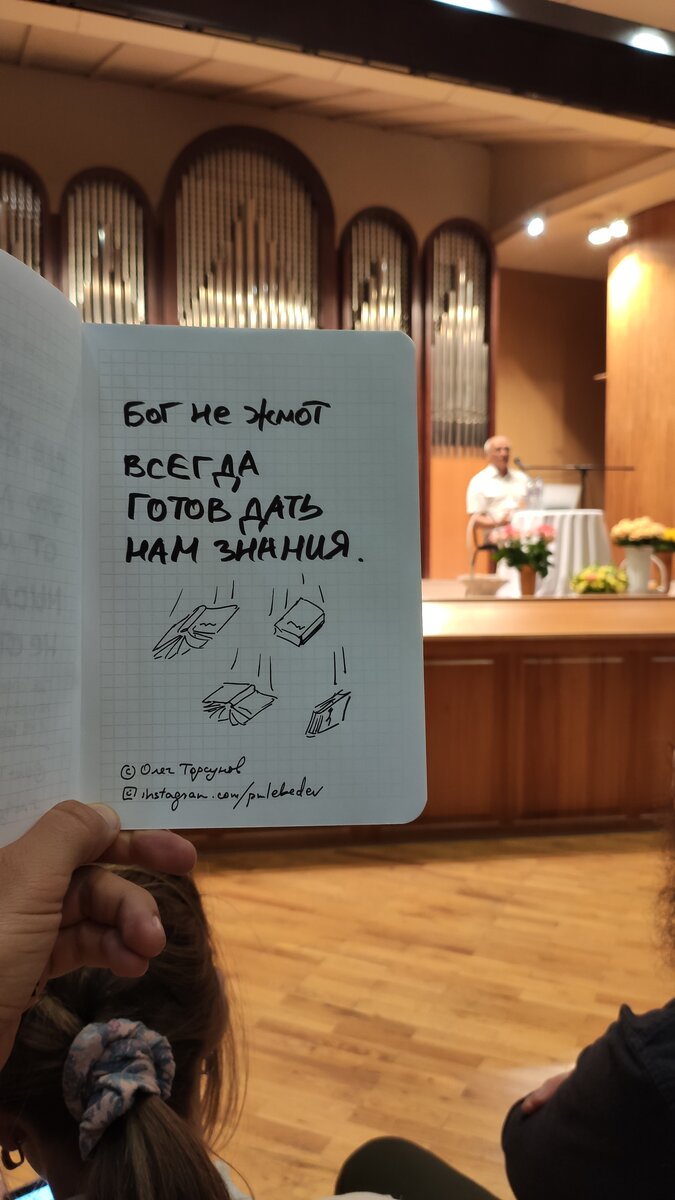 Бог не жмот
ВСЕГДА
ГОТОВ ДАТЬ
НАМ ЗНАНИЯ.
© Олег Торсунов
instagram.com/pnlebedev